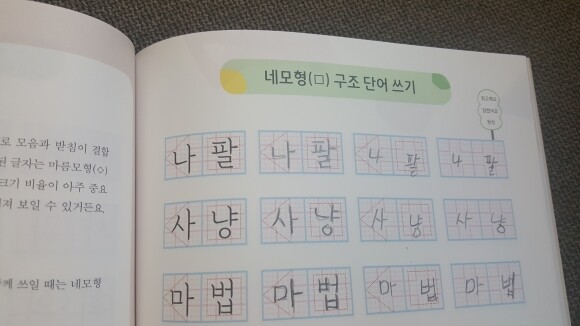 네모형(□) 구조 단어 쓰기
로 모음과 받침이 결합
된 글자는 마름모형(◇)
크기 비율이 아주 중요
져 보일 수 있거든요.
께 쓰일 때는 네모형
나 팔 나 팔 나 팔 나 팔
사 냥 사 냥 사 냥 사 냥
마 법 마 법 마 법 마 법